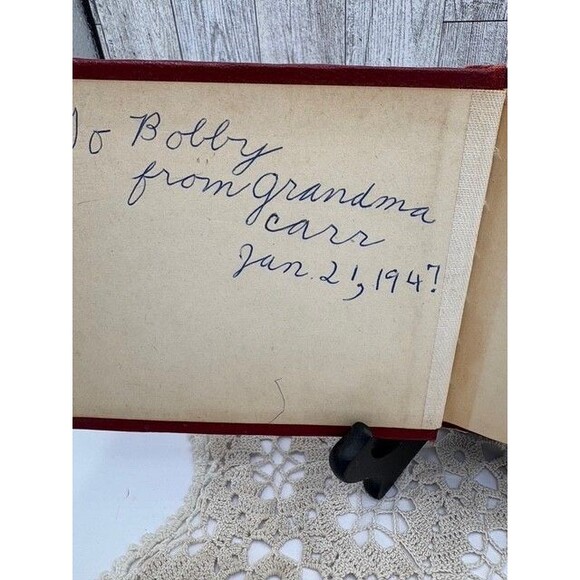 To Bobby
from Grandma
Carr
Jan. 21, 1947